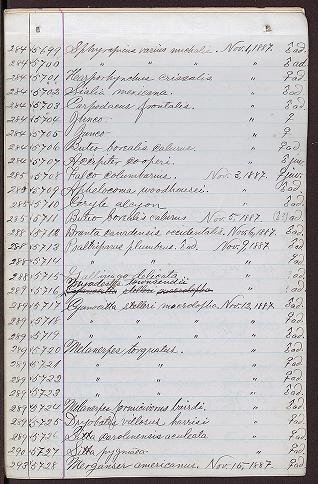 284 5699 Sphyrapicus varius nuchalis. Nov. 1, 1887. ad.
284 5700 " " " " ad.
284 5701 Harporhynchus crissalis " ad.
284 5702 Sialia mexicana. " ad.
284 5703 Carpodacus frontalis. " ad.
284 5704 Junco "
284 5705 Junco "
284 5706 Buteo borealis calurus. " ad.
284 5707 Accipiter cooperi. " juv.
5708 Falco columbarius. Nov. 3, 1887. juv.
5709 Aphelocoma woodhousei. " ad.
285 5710 Ceryle alcyon " ad.
285 5711 Buteo borealis calurus Nov. 5, 1887. ad.
288 5712 Branta canadensis occidentalis. Nov. 6, 1887. ad.
288 5713 Psaltriparus plumbeus. Nov. 9, 1887. ad.
288 5714 " " "
288 5715 Gallinago delicata " ad.
289 5716 Myadestes townsendii " ad.
289 5717 Cyanocitta stelleri macrolopha. Nov. 13, 1887. ad.
289 5718 " " " " ad.
289 5719 " " " " ad.
289 5720 Melanerpes torquatus. " ad.
289 5721 " " " ad.
289 5722 " " " ad.
289 5723 " " " ad.
289 5724 Melanerpes formicivorus bairdi. " ad.
289 5725 Dryobates villosus harrisi " ad.
289 5726 Sitta carolinensis aculeata " ad.
290 5727 Sitta pygmaea " ad.
293 5728 Merganser americanus. Nov. 15, 1887. ad.